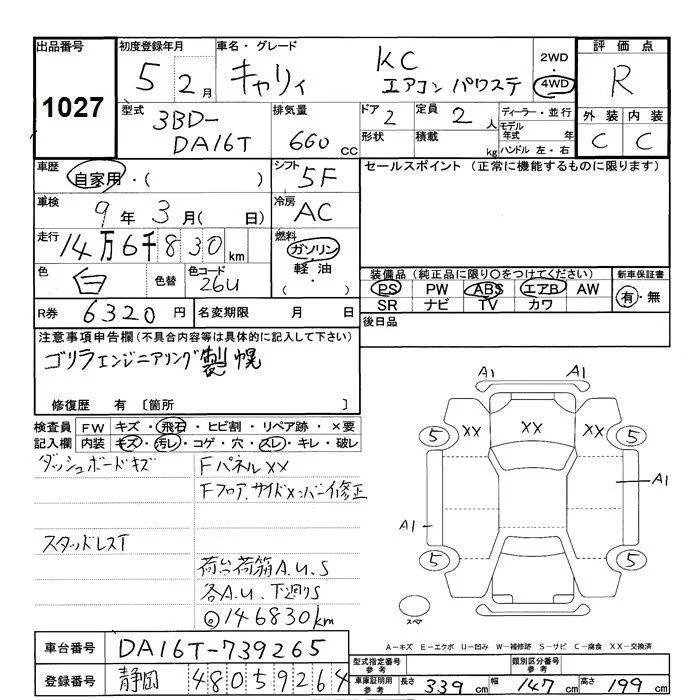 出品番号
1027
初度登録年月
5 2月
車名・グレード
キャリィ
KC
エアコン パワステ
2WD
4WD
評価点
R
外装 内装
C C
型式
3BD-
DA16T
排気量
660 cc
ドア 2
形状
定員 2人
積載 kg
ディーラー・並行
モデル年式 年
ハンドル 左・右
車歴
自家用・( )
シフト
5F
車検
9年3月( 日)
冷房
AC
走行
14万6千830km
燃料
ガソリン
軽油
・
色
白
色替
色コード
26U
R券 6320円
名変期限 月 日
セールスポイント (正常に機能するものに限ります)
装備品 (純正品に限り〇をつけてください)
PS PW ABS エアB AW
SR ナビ TV カワ
新車保証書
有・無
後日品
注意事項申告欄(不具合内容等は具体的に記入して下さい)
ゴリラエンジニアリング製幌
修復歴 有 〔箇所 〕
検査員 FW キズ・飛石・ヒビ割・リペア跡・×要
記入欄 内装 キズ・汚レ・コゲ・穴・スレ・キレ・破レ
ダッシュボードキズ
Fパネル××
Fフロア.サイド×ンバーイ修正
スタッドレスT
荷台荷箱A.U.S
各A.U.下廻りS
◎146830km
A1 A1
XX XX XX
5 5
A1
A1
5 5
スペア
A-キズ E-エクボ U-凹み W-補修跡 S-サビ C-腐食 XX-交換済
車台番号 DA16T-739265
登録番号 静岡 480 5 9264
型式指定番号 参考
類別区分番号 参考
車庫証明用 参考 長さ 339cm 幅 147cm 高さ 199cm